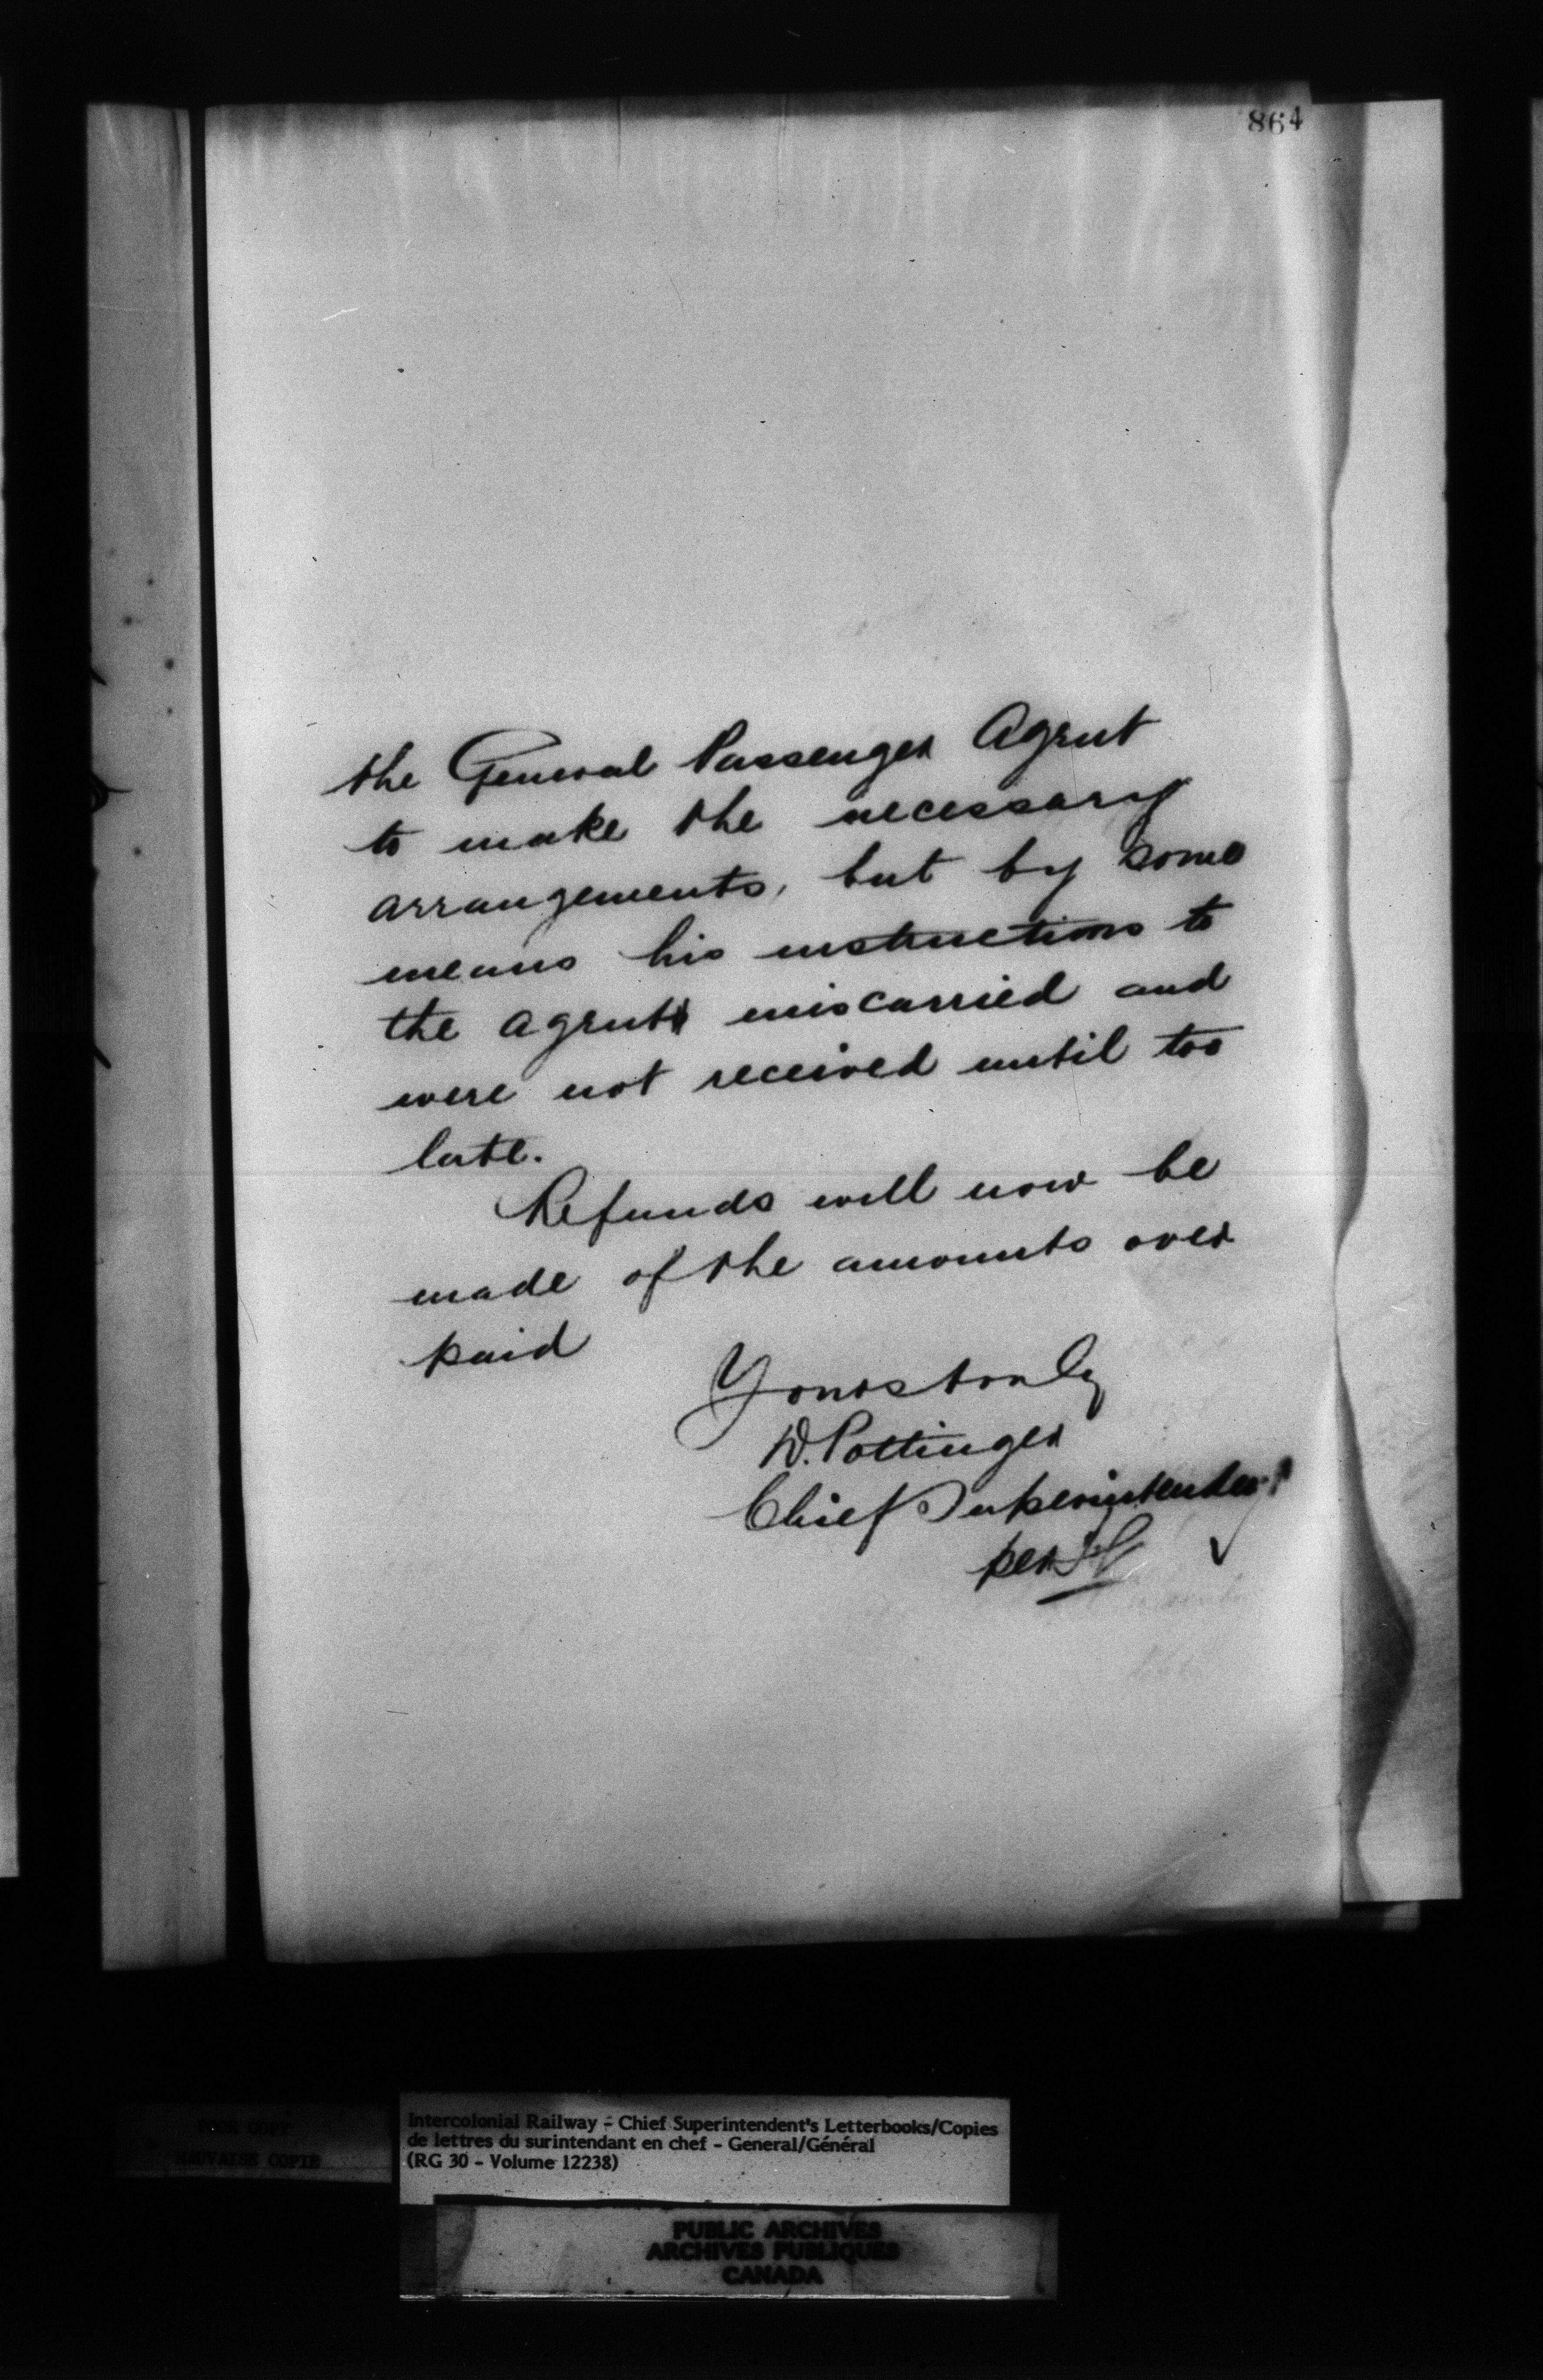 864
the General Passenger Agent
to make the necessary
arrangements, but by some
means his instructions to
the agents miscarried and
were not received until too
late.
Refunds will now be
made of the amounts over
paid
Yours truly
D. Pottinger
Chief Superintendent
per
POOR COPY
MAUVAISE COPIE
Intercolonial Railway - Chief Superintendent's Letterbooks/Copies
de lettres du surintendant en chef - General/Général
(RG 30 - Volume 12238)
PUBLIC ARCHIVES
ARCHIVES PUBLIQUES
CANADA